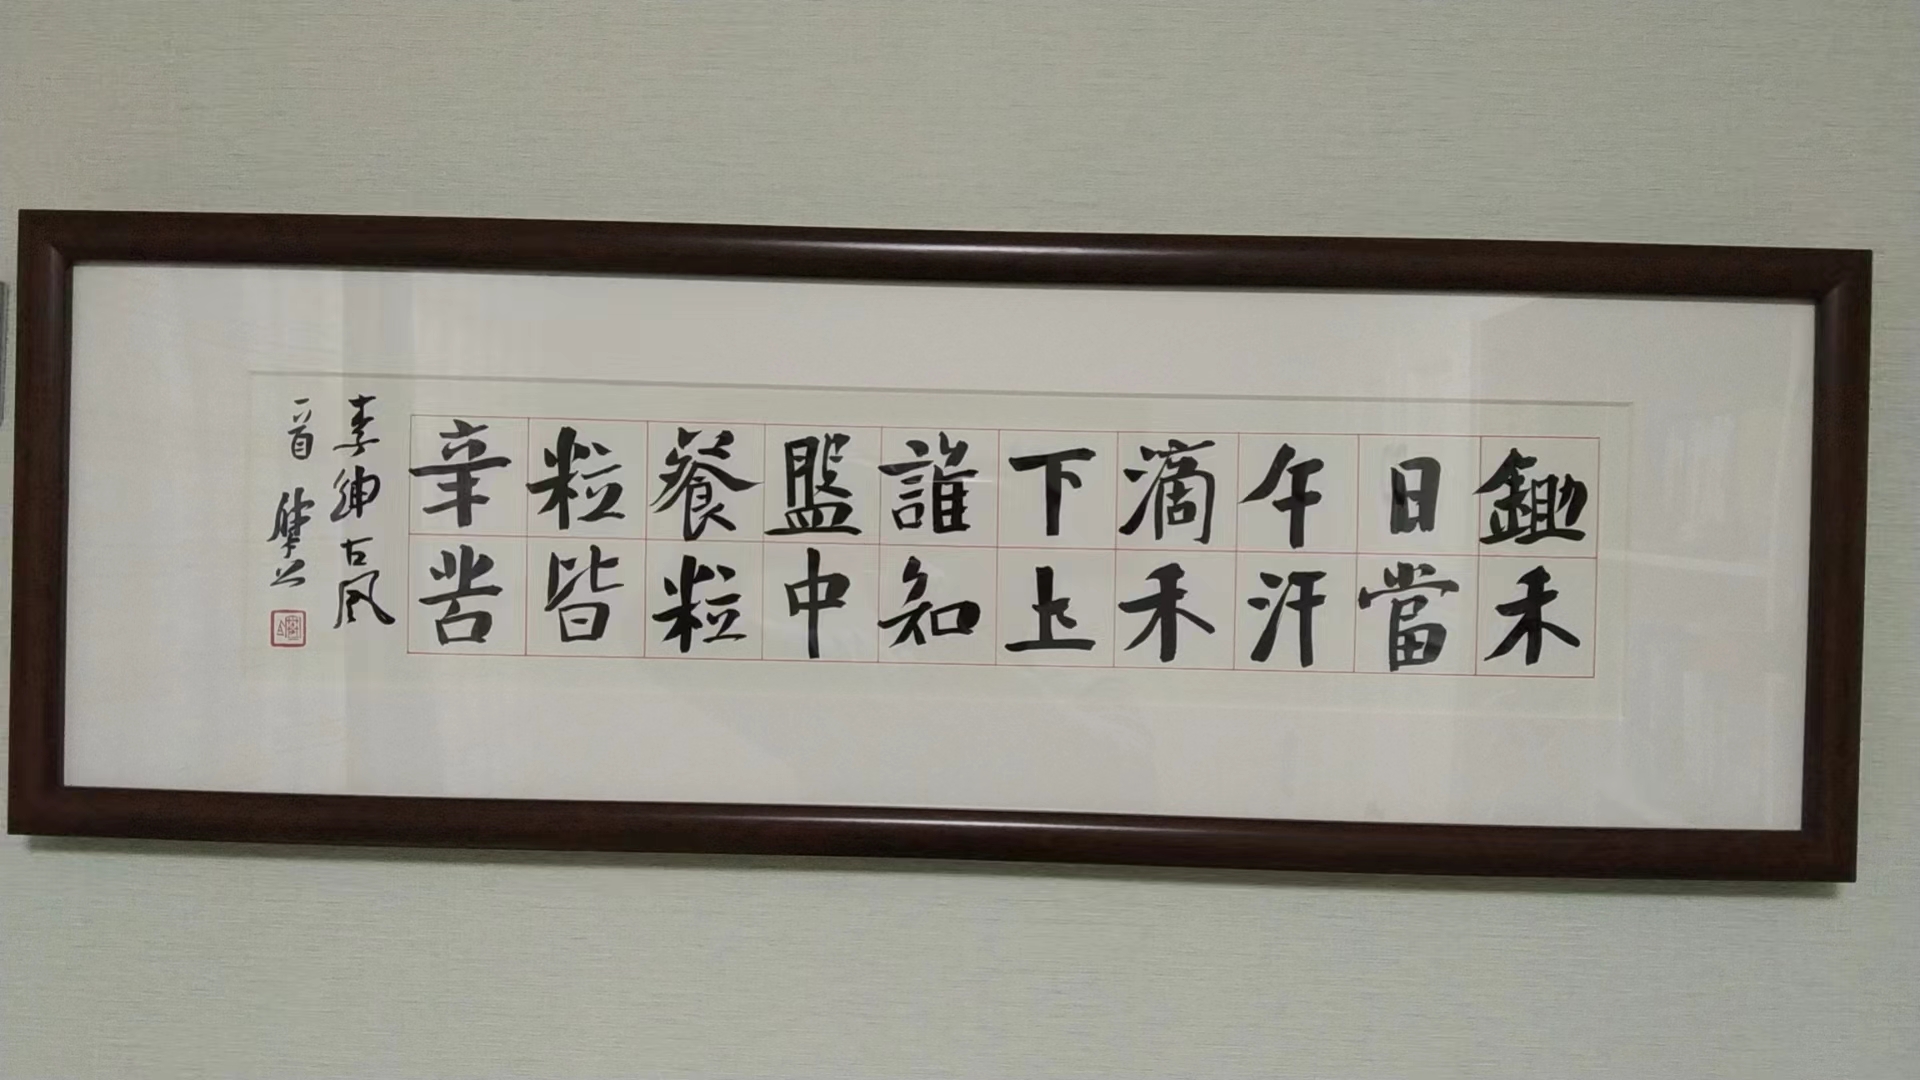 鋤禾
日當
午汗
滴禾
下土
誰知
盤中
餐粒
粒皆
辛苦
李紳古風
一首